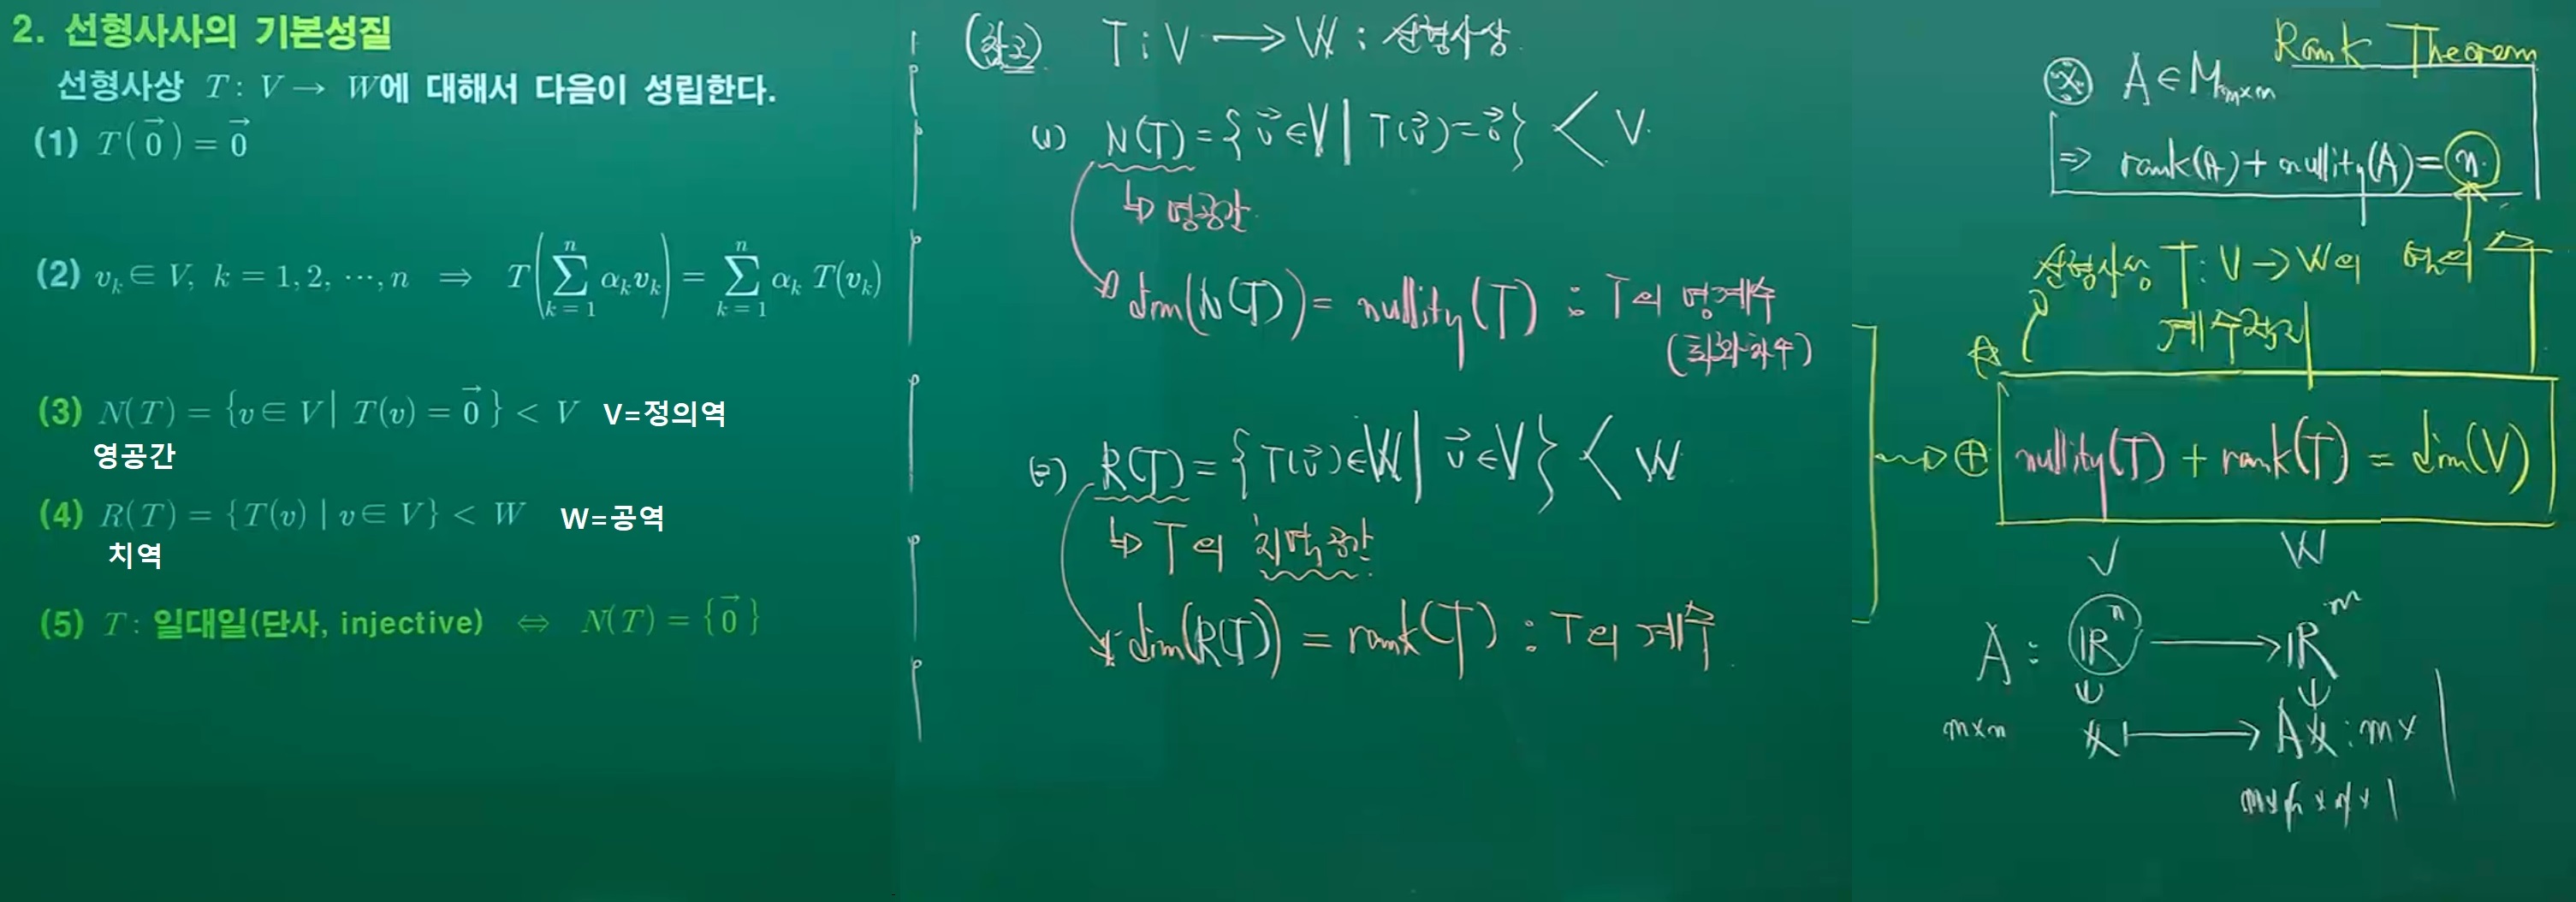 2. 선형사사의 기본성질
선형사상 T : V → W에 대해서 다음이 성립한다.
(1) T(0⃗) = 0⃗
(2) vₖ ∈ V, k = 1, 2, ⋯, n ⇒ T(∑ₖ₌₁ⁿ αₖvₖ) = ∑ₖ₌₁ⁿ αₖ T(vₖ)
(3) N(T) = {v ∈ V | T(v) = 0⃗} < V V=정의역
영공간
(4) R(T) = {T(v) | v ∈ V} < W W=공역
치역
(5) T : 일대일(단사, injective) ⇔ N(T) = {0⃗}
(참고) T : V → W : 선형사상
(1) N(T) = {v⃗ ∈ V | T(v⃗) = 0⃗} < V.
↳ 영공간.
dim(N(T)) = nullity(T) : T의 영계수
(퇴화차수)
(2) R(T) = {T(v⃗) ∈ W | v⃗ ∈ V} < W
↳ T의 치역공간.
dim(R(T)) = rank(T) : T의 계수
Rank Theorem
※ A ∈ Mₘₓₙ
⇒ rank(A) + nullity(A) = n.
선형사상 T : V → W의
계수정리
nullity(T) + rank(T) = dim(V)
V W
A : ℝⁿ → ℝᵐ
m×n x ↦ Ax : m×
m×n×n×1